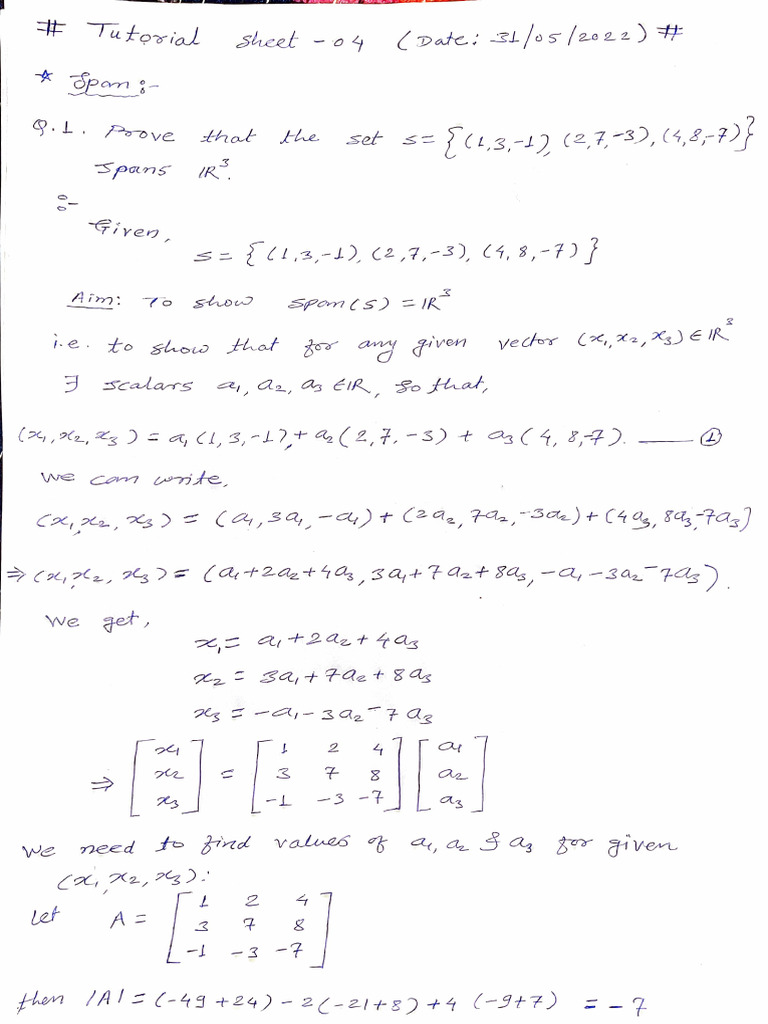 # Tutorial sheet - 04 (Date: 31/05/2022) #
* Span :-
Q.1. Prove that the set s = {(1,3,-1), (2,7,-3), (4,8,-7)}
spans IR³.
:-
Given,
s = {(1,3,-1), (2,7,-3), (4,8,-7)}
Aim: To show span(s) = IR³
i.e. to show that for any given vector (x₁, x₂, x₃) ∈ IR³
∃ scalars a₁, a₂, a₃ ∈ IR, so that,
(x₁, x₂, x₃) = a₁(1,3,-1) + a₂(2,7,-3) + a₃(4,8,-7). —— ①
we can write,
(x₁, x₂, x₃) = (a₁, 3a₁, -a₁) + (2a₂, 7a₂, -3a₂) + (4a₃, 8a₃, -7a₃)
⇒ (x₁, x₂, x₃) = (a₁+2a₂+4a₃, 3a₁+7a₂+8a₃, -a₁-3a₂-7a₃).
we get,
x₁ = a₁+2a₂+4a₃
x₂ = 3a₁+7a₂+8a₃
x₃ = -a₁-3a₂-7a₃
⇒ [x₁ x₂ x₃] = [1 2 4 3 7 8 -1 -3 -7] [a₁ a₂ a₃]
we need to find values of a₁, a₂ & a₃ for given
(x₁, x₂, x₃):
let A = [1 2 4 3 7 8 -1 -3 -7]
then |A| = (-49+24) -2(-21+8) +4 (-9+7) = -7